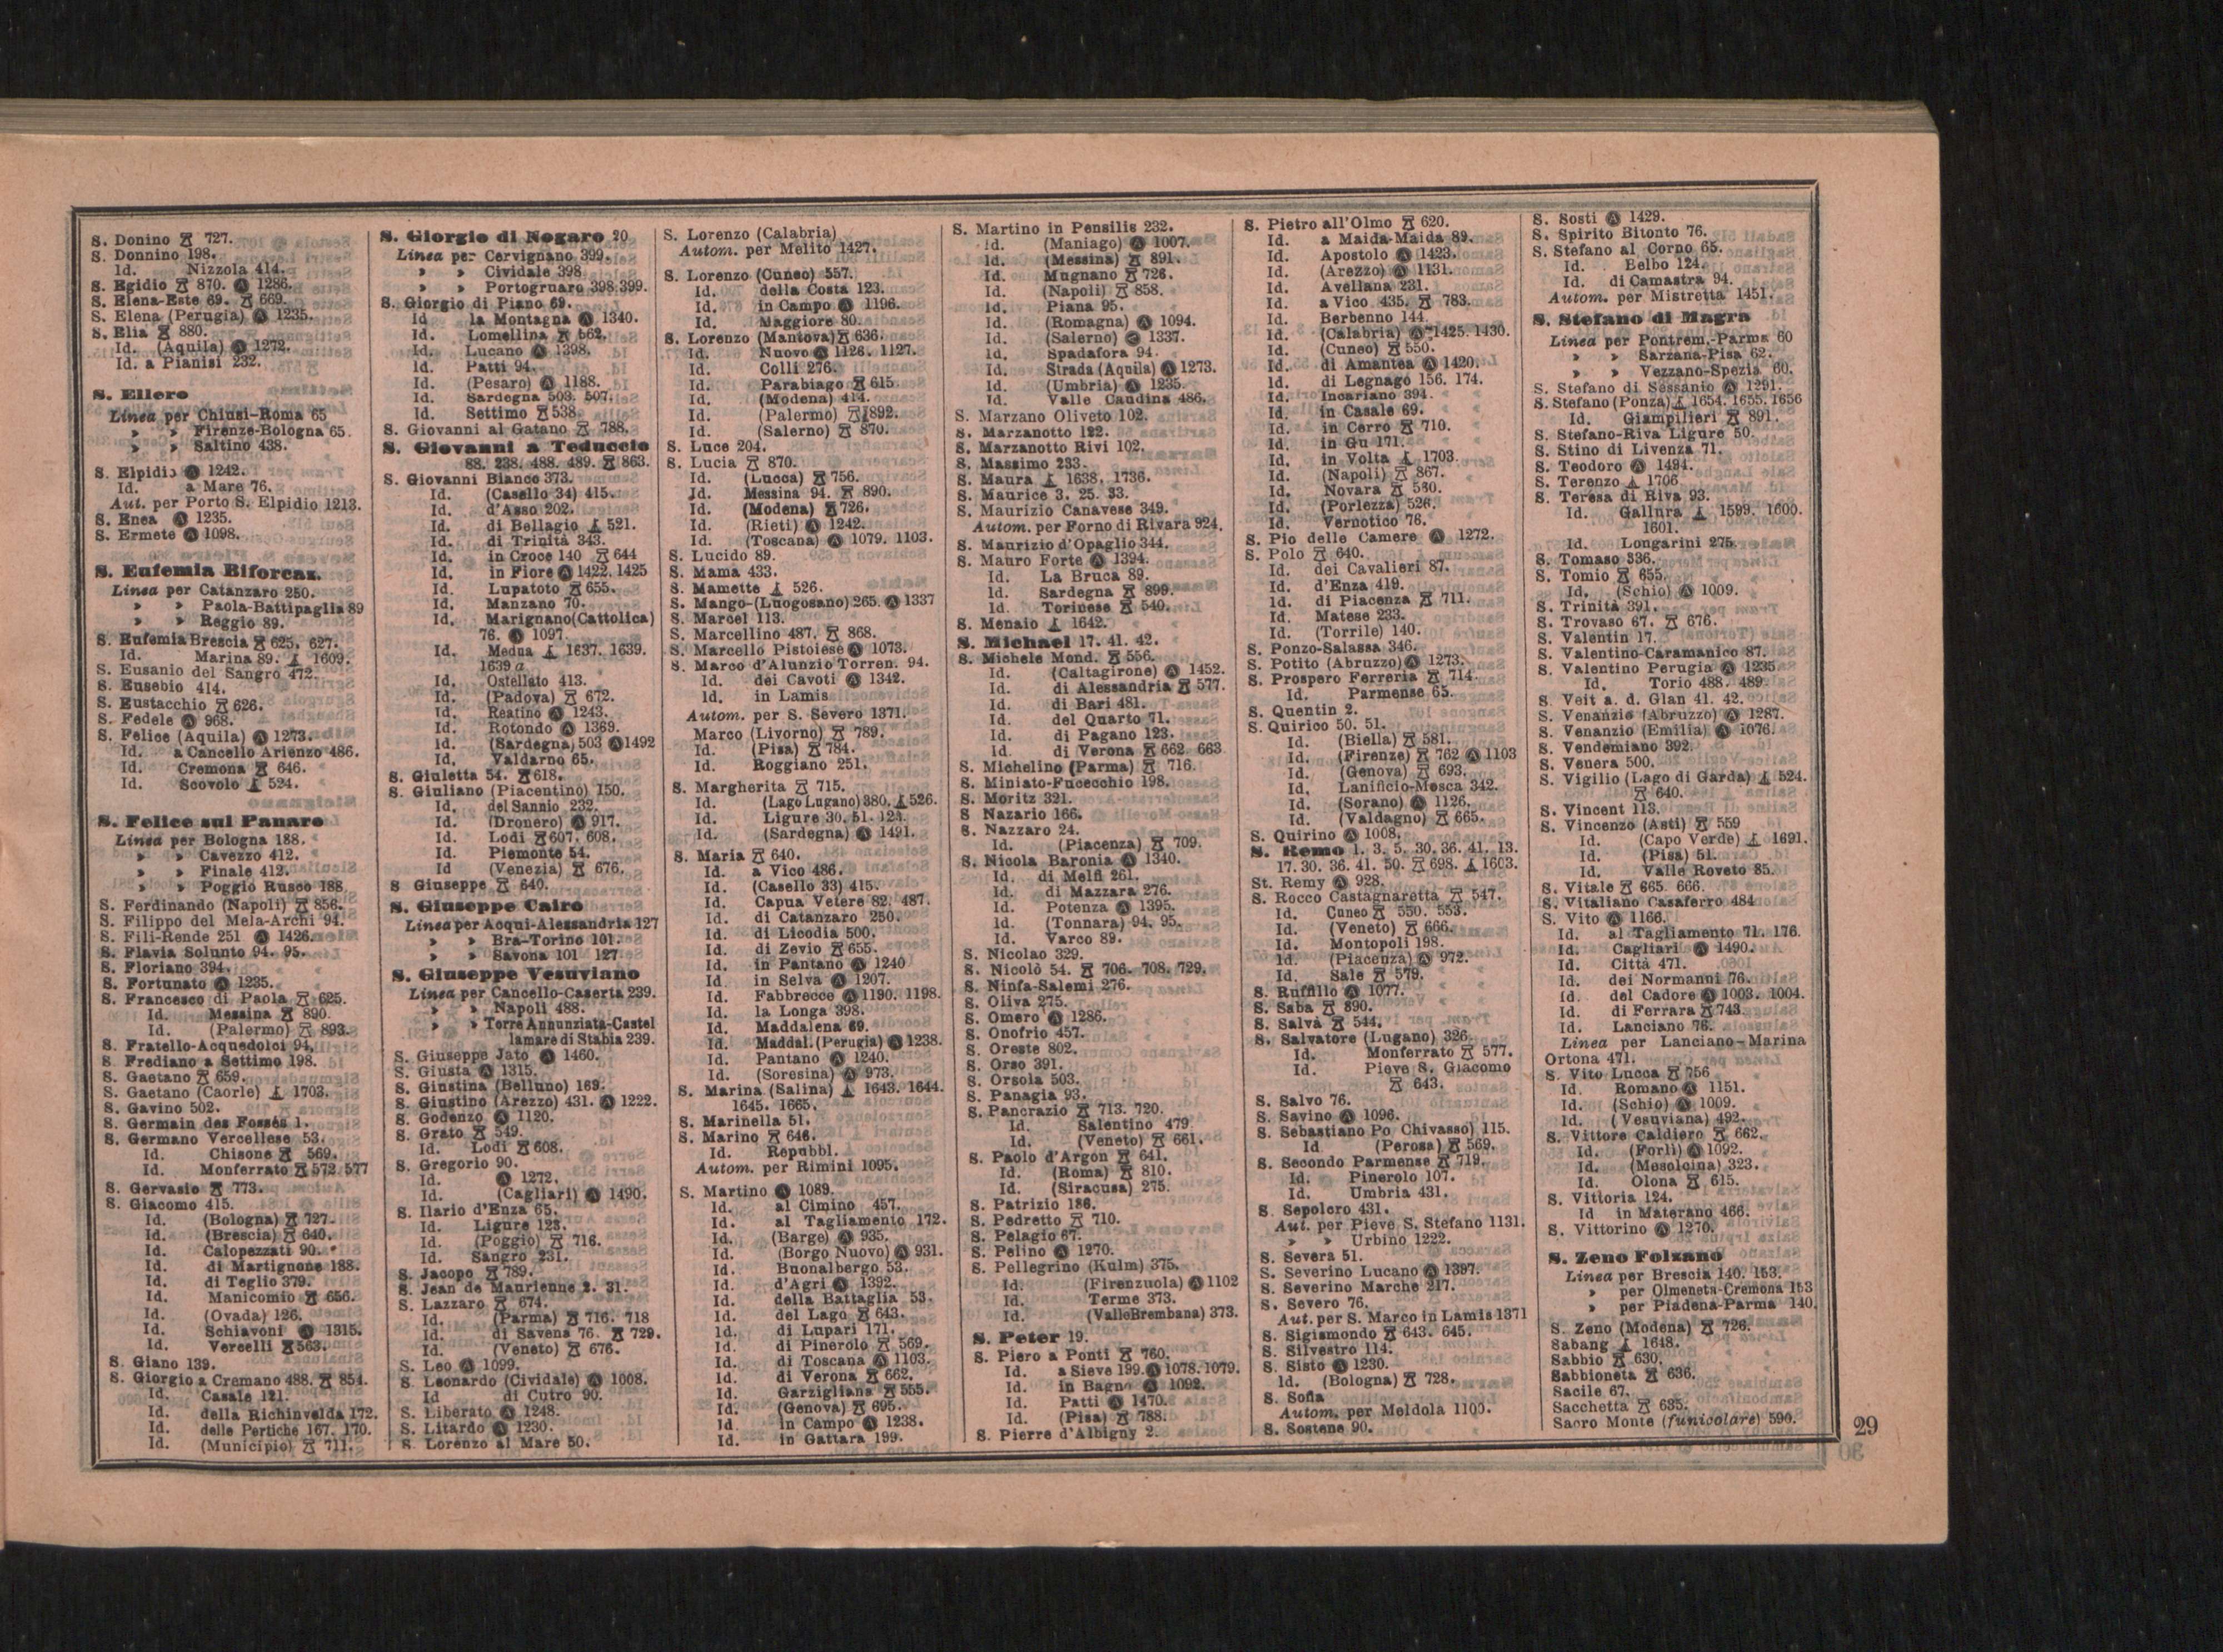 S. Donino 727.
S. Donnino 198.
Id. Nizzola 414.
S. Egidio 870. Ⓐ 1286.
S. Elena-Este 69. 669.
S. Elena (Perugia) Ⓐ 1235.
S. Elia 880.
Id. (Aquila) Ⓐ 1272.
Id. a Pianisi 232.
S. Ellero
Linea per Chiusi-Roma 65
» » Firenze-Bologna 65.
» » Saltino 438.
S. Elpidio Ⓐ 1242.
Id. a Mare 76.
Aut. per Porto S. Elpidio 1213.
S. Enea Ⓐ 1235.
S. Ermete Ⓐ 1098.
S. Eufemia Biforcaz.
Linea per Catanzaro 250.
» » Paola-Battipaglia 89
» » Reggio 89.
S. Eufemia Brescia 625. 627.
Id. Marina 89. 1609.
S. Eusanio del Sangro 472.
S. Eusebio 414.
S. Eustacchio 626.
S. Fedele Ⓐ 968.
S. Felice (Aquila) Ⓐ 1273.
Id. a Cancello Arienzo 486.
Id. Cremona 646.
Id. Scovolo 524.
S. Felice sul Panaro
Linea per Bologna 188.
» » Cavezzo 412.
» » Finale 412.
» » Poggio Rusco 188
S. Ferdinando (Napoli) 856.
S. Filippo del Mela-Archi 94.
S. Fili-Rende 251 Ⓐ 1426.
S. Flavia Solunto 94. 95.
S. Floriano 394.
S. Fortunato Ⓐ 1235.
S. Francesco di Paola 625.
Id. Messina 890.
Id. (Palermo) 893.
S. Fratello-Acquedolci 94.
S. Frediano a Settimo 198.
S. Gaetano 659.
S. Gaetano (Caorle) 1703.
S. Gavino 502.
S. Germain des Fossés 1.
S. Germano Vercellese 53.
Id. Chisone 569.
Id. Monferrato 572 577
S. Gervasio 773.
S. Giacomo 415.
Id. (Bologna) 727.
Id. (Brescia) 640.
Id. Calopezzati 90.
Id. di Martignone 188.
Id. di Teglio 379.
Id. Manicomio 656.
Id. (Ovada) 126.
Id. Schiavoni Ⓐ 1315.
Id. Vercelli 563.
S. Giano 139.
S. Giorgio a Cremano 488. 854.
Id. Casale 121.
Id. della Richinvelda 172.
Id. delle Pertiche 167. 170.
Id. (Municipio) 711.
S. Giorgio di Nogaro 20
Linea per Cervignano 399.
» » Cividale 398
» » Portogruaro 398.399.
S. Giorgio di Piano 69.
Id. la Montagna Ⓐ 1340.
Id. Lomellina 562.
Id. Lucano Ⓐ 1398.
Id. Patti 94.
Id. (Pesaro) Ⓐ 1188.
Id. Sardegna 503. 507.
Id. Settimo 538.
S. Giovanni al Gatano 788.
S. Giovanni a Teduccio
88. 238. 488. 489. 863.
S. Giovanni Bianco 373.
Id. (Casello 34) 415.
Id. d'Asso 202.
Id. di Bellagio 521.
Id. di Trinità 343.
Id. in Croce 140 644
Id. in Fiore Ⓐ 1422. 1425
Id. Lupatoto 655.
Id. Manzano 70.
Id. Marignano(Cattolica)
76. Ⓐ 1097.
Id. Medua 1637. 1639.
1639 a
Id. Ostellato 413.
Id. (Padova) 672.
Id. Reatino Ⓐ 1243.
Id. Rotondo Ⓐ 1369.
Id. (Sardegna) 503 Ⓐ 1492
Id. Valdarno 65.
S. Giuletta 54. 618.
S. Giuliano (Piacentino) 150.
Id. del Sannio 232.
Id. (Dronero) Ⓐ 917.
Id. Lodi 607. 608.
Id. Piemonte 54.
Id (Venezia) 676.
S Giuseppe 640.
S. Giuseppe Cairo
Linea per Acqui-Alessandria 127
» » Bra-Torino 101.
» » Savona 101 127
S. Giuseppe Vesuviano
Linea per Cancello-Caserta 239.
» » Napoli 488.
» » Torre Annunziata-Castel
lamare di Stabia 239.
S. Giuseppe Jato Ⓐ 1460.
S. Giusta Ⓐ 1315.
S. Giustina (Belluno) 169.
S. Giustino (Arezzo) 431. Ⓐ 1222.
S. Godenzo Ⓐ 1120.
S. Grato 549.
Id. Lodi 608.
S. Gregorio 90.
Id. Ⓐ 1272.
Id. (Cagliari) Ⓐ 1490.
S. Ilario d'Enza 65.
Id. Ligure 123.
Id. (Poggio) 716.
Id. Sangro 231.
S. Jacopo 789.
S. Jean de Maurienne 2. 31.
S. Lazzaro 674.
Id. (Parma) 716. 718
Id. di Savena 76. 729.
Id. (Veneto) 676.
S. Leo Ⓐ 1099.
S. Leonardo (Cividale) Ⓐ 1008.
Id di Cutro 90.
S. Liberato Ⓐ 1248.
S. Litardo Ⓐ 1230.
S. Lorenzo al Mare 50.
S. Lorenzo (Calabria)
Autom. per Melito 1427.
S. Lorenzo (Cuneo) 557.
Id. della Costa 123.
Id. in Campo Ⓐ 1196.
Id. Maggiore 80.
S. Lorenzo (Mantova) 636.
Id. Nuovo Ⓐ 1126. 1127.
Id. Colli 276.
Id. Parabiago 615
Id. (Modena) 414.
Id. (Palermo) 892.
Id. (Salerno) 870.
S. Luce 204.
S. Lucia 870.
Id. (Lucca) 756.
Id. Messina 94. 890.
Id. (Modena) 726.
Id. (Rieti) Ⓐ 1242.
Id. (Toscana) Ⓐ 1079. 1103.
S. Lucido 89.
S. Mama 433.
S. Mamette 526.
S. Mango-(Luogosano) 265. Ⓐ 1337
S. Marcel 113.
S. Marcellino 487. 868.
S. Marcello Pistoiese Ⓐ 1073.
S. Marco d'Alunzio Torren. 94.
Id. dei Cavoti Ⓐ 1342.
Id. in Lamis
Autom. per S. Severo 1371.
Marco (Livorno) 789.
Id. (Pisa) 784.
Id. Roggiano 251.
S. Margherita 715.
Id. (Lago Lugano) 380. 526.
Id. Ligure 30. 51. 123.
Id. (Sardegna) Ⓐ 1491.
S. Maria 640.
Id. a Vico 486.
Id. (Casello 33) 415.
Id. Capua Vetere 82. 487.
Id. di Catanzaro 250.
Id. di Licodia 500.
Id. di Zevio 655.
Id. in Pantano Ⓐ 1240
Id. in Selva Ⓐ 1207.
Id. Fabbrecce Ⓐ 1190. 1198.
Id. la Longa 398.
Id. Maddalena 69.
Id. Maddal. (Perugia) Ⓐ 1238.
Id. Pantano Ⓐ 1240.
Id. (Soresina) Ⓐ 973.
S. Marina (Salina) 1643. 1644.
1645. 1665.
S. Marinella 51.
S. Marino 646.
Id. Repubbl.
Autom. per Rimini 1095.
S. Martino Ⓐ 1089.
Id. al Cimino 457.
Id. al Tagliamento 172.
Id. (Barge) Ⓐ 935.
Id. (Borgo Nuovo) Ⓐ 931.
Id. Buonalbergo 53.
Id. d'Agri Ⓐ 1392.
Id. della Battaglia 53.
Id. del Lago 643.
Id. di Lupari 171.
Id. di Pinerolo 569.
Id. di Toscana Ⓐ 1103.
Id. di Verona 662.
Id. Garzigliana 555.
Id. (Genova) 695.
Id. in Campo Ⓐ 1238.
Id. in Gattara 199.
S. Martino in Pensilis 232.
Id. (Maniago) Ⓐ 1007.
Id. (Messina) 891.
Id. Mugnano 726.
Id. (Napoli) 858.
Id. Piana 95.
Id. (Romagna) Ⓐ 1094.
Id. (Salerno) Ⓐ 1337.
Id. Spadafora 94.
Id. Strada (Aquila) Ⓐ 1273.
Id. (Umbria) Ⓐ 1235.
Id. Valle Caudina 486.
S. Marzano Oliveto 102.
S. Marzanotto 122.
S. Marzanotto Rivi 102.
S. Massimo 233.
S. Maura 1638. 1736.
S. Maurice 3. 25. 33.
S. Maurizio Canavese 349.
Autom. per Forno di Rivara 924.
S. Maurizio d'Opaglio 344.
S. Mauro Forte Ⓐ 1394.
Id. La Bruca 89.
Id. Sardegna 899.
Id. Torinese 540.
S. Menaio 1642.
S. Michael 17. 41. 42.
S. Michele Mond. 556.
Id. (Caltagirone) Ⓐ 1452.
Id. di Alessandria 577.
Id. di Bari 481.
Id. del Quarto 71.
Id. di Pagano 123.
Id. di Verona 662 663
S. Michelino (Parma) 716.
S. Miniato-Fucecchio 198.
S. Moritz 321.
S Nazario 166.
S. Nazzaro 24.
Id. (Piacenza) 709.
S. Nicola Baronia Ⓐ 1340.
Id. di Melfi 261.
Id. di Mazzara 276.
Id. Potenza Ⓐ 1395.
Id. (Tonnara) 94. 95.
Id. Varco 89.
S. Nicolao 329.
S. Nicolò 54. 706. 708. 729.
S. Ninfa-Salemi 276.
S. Oliva 275.
S. Omero Ⓐ 1286.
S. Onofrio 457.
S. Oreste 802.
S. Orso 391.
S. Orsola 503.
S. Panagia 93.
S. Pancrazio 713. 720.
Id. Salentino 479
Id. (Veneto) 661.
S. Paolo d'Argon 641.
Id. (Roma) 810.
Id. (Siracusa) 275.
S. Patrizio 186.
S. Pedretto 710.
S. Pelagio 67.
S. Pelino Ⓐ 1270.
S. Pellegrino (Kulm) 375.
Id. (Firenzuola) Ⓐ 1102
Id. Terme 373.
Id. (ValleBrembana) 373.
S. Peter 19.
S. Piero a Ponti 760.
Id. a Sieve 199. Ⓐ 1078. 1079.
Id. in Bagno Ⓐ 1092.
Id. Patti Ⓐ 1470.
Id. (Pisa) 788.
S. Pierre d'Albigny 2.
S. Pietro all'Olmo 620.
Id. a Maida-Maida 89.
Id. Apostolo Ⓐ 1423.
Id. (Arezzo) Ⓐ 1131.
Id. Avellana 231.
Id. a Vico 435. 783.
Id. Berbenno 144.
Id. (Calabria) Ⓐ 1425. 1430.
Id. (Cuneo) 550.
Id. di Amantea Ⓐ 1420.
Id. di Legnago 156. 174.
Id. Incariano 394.
Id. in Casale 69.
Id. in Cerro 710.
Id. in Gu 171.
Id. in Volta 1703
Id. (Napoli) 867.
Id. Novara 530.
Id. (Porlezza) 526.
Id. Vernotico 76.
S. Pio delle Camere Ⓐ 1272.
S. Polo 640.
Id. dei Cavalieri 87.
Id. d'Enza 419.
Id. di Piacenza 711.
Id. Matese 233.
Id. (Torrile) 140.
S. Ponzo-Salassa 346.
S. Potito (Abruzzo) Ⓐ 1273.
S. Prospero Ferreria 714.
Id. Parmense 65.
S. Quentin 2.
S. Quirico 50. 51.
Id. (Biella) 581.
Id. (Firenze) 762 Ⓐ 1103
Id. (Genova) 693.
Id. Lanificio-Mosca 342.
Id. (Sorano) Ⓐ 1126.
Id. (Valdagno) 665.
S. Quirino Ⓐ 1008.
S. Remo 1. 3. 5. 30. 36. 41. 13.
17. 30. 36. 41. 50. 698. 1603.
St. Remy Ⓐ 928.
S. Rocco Castagnaretta 547.
Id. Cuneo 550. 553.
Id. (Veneto) 666.
Id. Montopoli 198.
Id. (Piacenza) Ⓐ 972.
Id. Sale 579.
S. Ruffillo Ⓐ 1077.
S. Saba 890.
S. Salvà 544.
S. Salvatore (Lugano) 326.
Id. Monferrato 577.
Id. Pieve S. Giacomo
643.
S. Salvo 76.
S. Savino Ⓐ 1096.
S. Sebastiano Po Chivasso) 115.
Id (Perosa) 569.
S. Secondo Parmense 719.
Id. Pinerolo 107.
Id. Umbria 431.
S. Sepolcro 431.
Aut. per Pieve S. Stefano 1131.
» » Urbino 1222.
S. Severa 51.
S. Severino Lucano Ⓐ 1397.
S. Severino Marche 217.
S. Severo 76.
Aut. per S. Marco in Lamis 1371
S. Sigismondo 643. 645.
S. Silvestro 114.
S. Sisto Ⓐ 1230.
Id. (Bologna) 728.
S. Sofia
Autom. per Meldola 1100.
S. Sostene 90.
S. Sosti Ⓐ 1429.
S. Spirito Bitonto 76.
S. Stefano al Corno 65.
Id. Belbo 124.
Id. di Camastra 94.
Autom. per Mistretta 1451.
S. Stefano di Magra
Linea per Pontrem.-Parma 60
» » Sarzana-Pisa 62.
» » Vezzano-Spezia 60.
S. Stefano di Sessanio Ⓐ 1291.
S. Stefano (Ponza) 1654. 1655. 1656
Id. Giampilieri 891.
S. Stefano-Riva Ligure 50.
S. Stino di Livenza 71.
S. Teodoro Ⓐ 1494.
S. Terenzo 1706
S. Teresa di Riva 93.
Id. Gallura 1599. 1600.
1601.
Id. Longarini 275.
S. Tomaso 336.
S. Tomio 655.
Id. (Schio) Ⓐ 1009.
S. Trinità 391.
S. Trovaso 67. 676.
S. Valentin 17.
S. Valentino-Caramanico 87.
S. Valentino Perugia Ⓐ 1235
Id. Torio 488. 489
S Veit a. d. Glan 41. 42.
S. Venanzio (Abruzzo) Ⓐ 1287.
S. Venanzio (Emilia) Ⓐ 1076.
S. Vendemiano 392.
S. Venera 500.
S. Vigilio (Lago di Garda) 524.
640.
S. Vincent 113.
S. Vincenzo (Asti) 559
Id. (Capo Verde) 1691.
Id. (Pisa) 51.
Id. Valle Roveto 85.
S. Vitale 665. 666.
S. Vitaliano Casaferro 484
S. Vito Ⓐ 1166.
Id. al Tagliamento 71. 176.
Id. Cagliari Ⓐ 1490.
Id. Città 471.
Id. dei Normanni 76.
Id. del Cadore Ⓐ 1003. 1004.
Id. di Ferrara 743.
Id. Lanciano 76.
Linea per Lanciano-Marina
Ortona 471.
S. Vito Lucca 756
Id. Romano Ⓐ 1151.
Id. (Schio) Ⓐ 1009.
Id. (Vesuviana) 492.
S. Vittore Caldiero 662.
Id. (Forlì) Ⓐ 1092.
Id. (Mesolcina) 323.
Id. Olona 615.
S. Vittoria 124.
Id in Materano 466.
S. Vittorino Ⓐ 1270.
S. Zeno Folzano
Linea per Brescia 140. 153.
» per Olmeneta-Cremona 153
» per Piadena-Parma 140.
S. Zeno (Modena) 726.
Sabang 1648.
Sabbio 630.
Sabbioneta 636.
Sacile 67.
Sacchetta 635.
Sacro Monte (funicolare) 590.
29